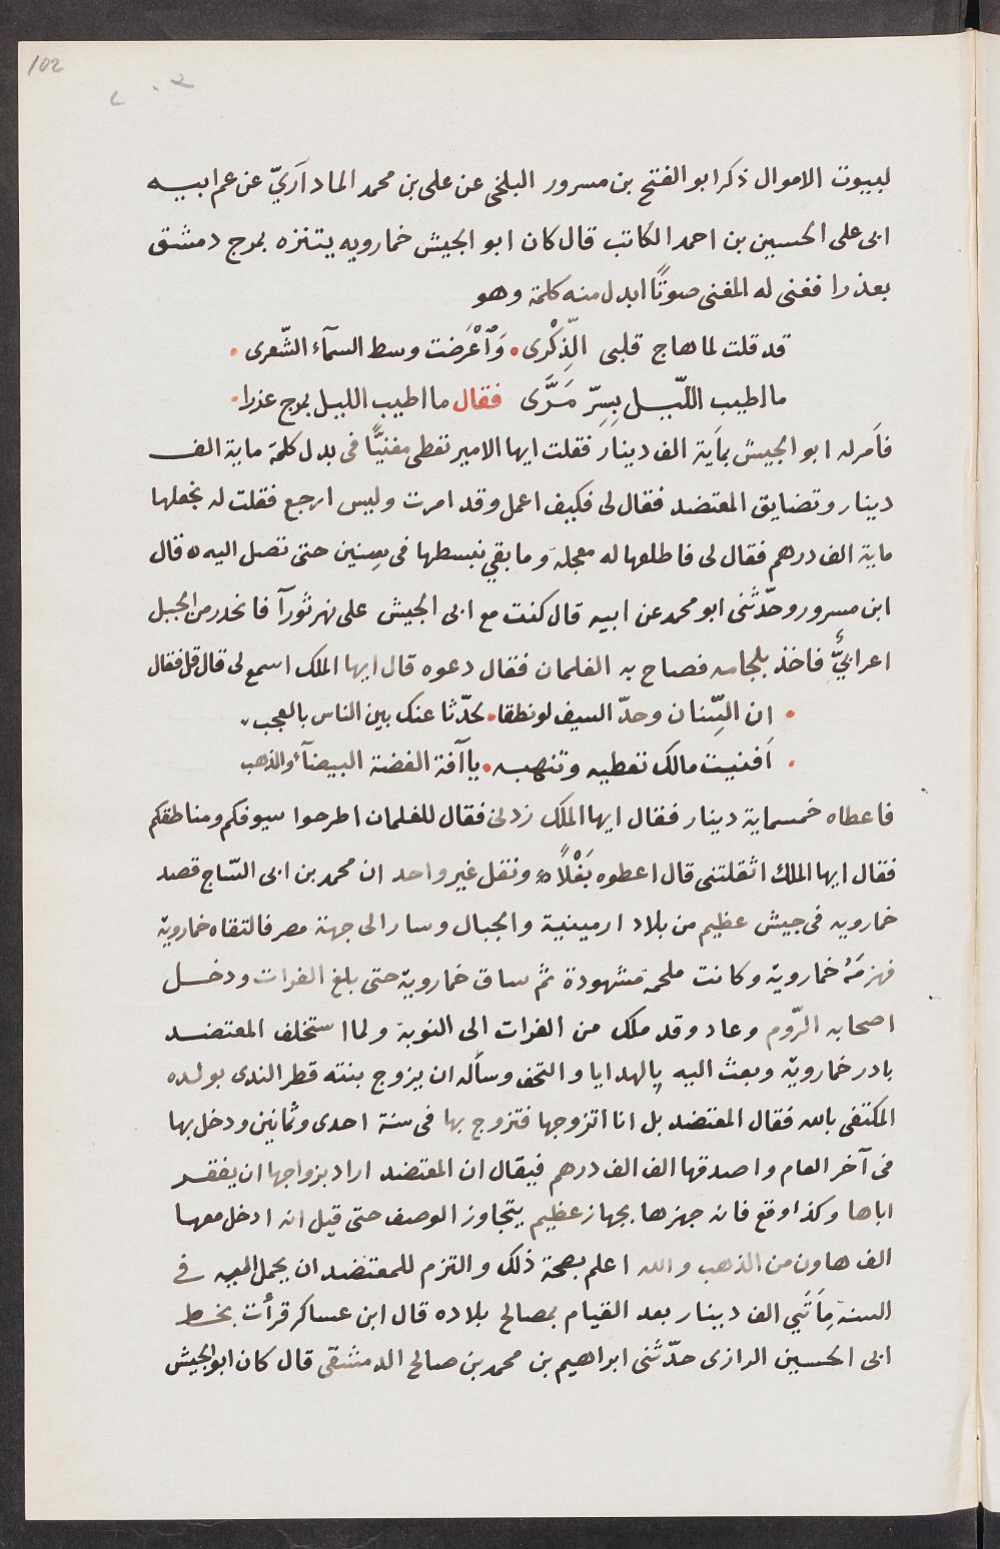 102
لبيوت الاموال ذكر ابو الفتح بن مسرور البلخى عن على بن محمد المادآرىّ عن عم ابيه
ابى على الحسين بن احمد الكاتب قال كان ابو الجيش خمارويه يتنزه بمرج دمشق
بعذرا فغنى له المغنى صوتًا ابدل منه كلمة وهو
قد قلت لما هاج قلبى الذِّكْرى • وَٱعْرَضت وسط السمآء الشّعرى •
ما اطيب اللّيل بِسِرّ مَرَّى فقال ما اطيب الليل بمرج عذرا •
فأمر له ابو الجيش بمأية الف دينار فقلت ايها الامير تعطى مغنيًّا فى بدل كلمة ماية الف
دينار وتضايق المعتضد فقال لى فكيف اعمل وقد امرت وليس ارجع فقلت له نجعلها
ماية الف درهم فقال لى فاطلعها له معجلة وما بقي نبسطها فى سِنين حتى تصل اليه ه قال
ابن مسرور وحدّثنى ابو محمد عن ابيه قال كنت مع ابى الجيش على نهر ثورآ فانحدر من الجبل
اعرابىٌّ فاخذ بلجامه فصاح به الغلمان فقال دعوه قال ايها الملك اسمع لى قال قل فقال
• اِن السِّنان وحدّ السيف لو نطقا • لحدّثا عنك بين الناس بالعجب
• اَفنيت مالك تعطيه وتنهبه • يا آفة الفضة البيضآء والذهب
فاعطاه خمسماية دينار فقال ايها الملك زدنى فقال للغلمان اطرحوا سيوفكم ومناطقكم
فقال ايها الملك اثقلتنى قال اعطوه بَغْلًا ه ونقل غير واحد ان محمد بن ابى السّاج قصد
خمارويه فى جيش عظيم من بلاد ارمينية والجبال وسار الى جهة مصر فالتقاه خمارويّة
فهزمَهُ خمارويّة وكانت ملحمة مشهودة ثم ساق خمارويّة حتى بلغ الفرات ودخل
اصحابه الرّوم وعاد وقد ملك من الفرات الى النوبة ولما استخلف المعتضد
بادر خمارويّة وبعث اليه بالهدايا والتحف وسأله ان يزوج بنته قطر الندى بولده
المكتفى بالله فقال المعتضد بل انا اتزوجها فتزوج بها فى سنة احدى وثمانين ودخل بها
فى آخر العام واصدقها الف الف درهم فيقال ان المعتضد اراد بزواجها ان يفقر
اباها وكذا وقع فانه جهزها بجهاز عظيم يتجاوز الوصف حتى قيل انه ادخل معها
الف هاون من الذهب والله اعلم بصحة ذلك والتزم للمعتضد ان يحمل اليه فى
السنة مِأتَي الف دينار بعد القيام بمصالح بلاده قال ابن عساكر قرأت بخط
ابى الحسين الرازى حدّثنى ابراهيم بن محمد بن صالح الدمشقى قال كان ابو الجيش